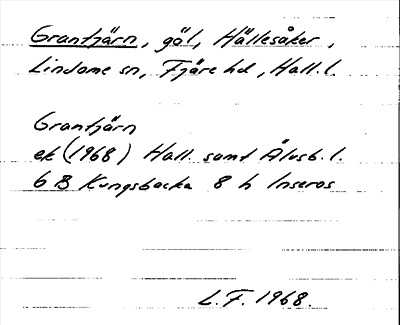 Grantjärn, göl, Hällesåker,
Lindome sn, Fjäre hd, Hall. l.
Grantjärn
ek (1968) Hall. samt Älvsb. l.
6 B Kungsbacka 8 h Inseros
L. F. 1968.